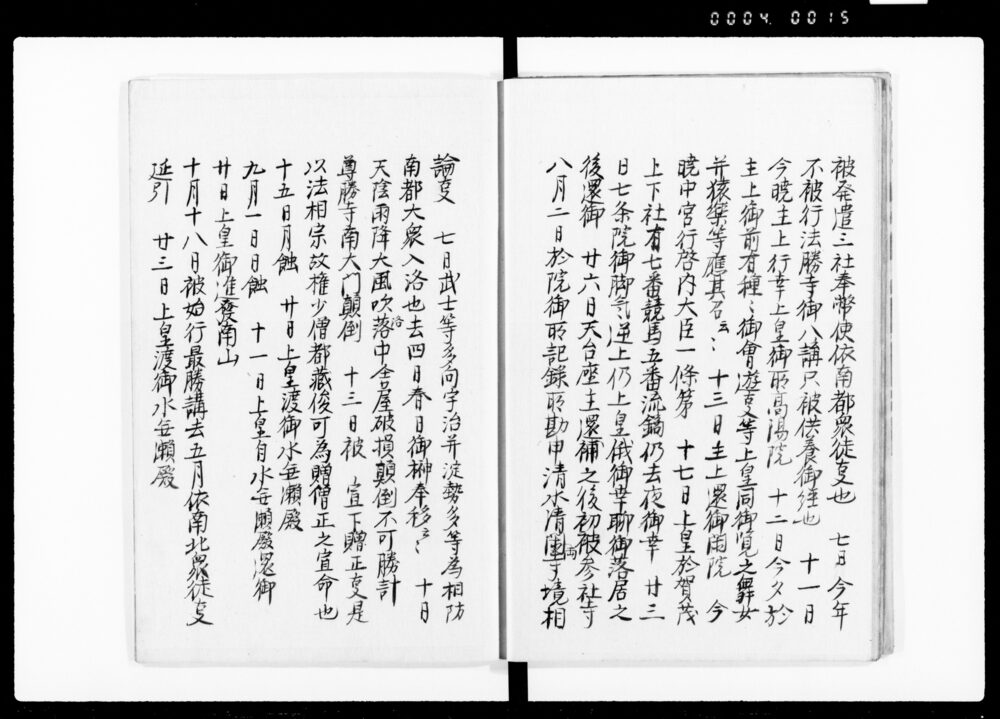 0004. 0015
被発遣三社奉幣使依南都衆徒夏也　七日今年
不被行法勝寺御八講只被供養御経也　十一日
今暁主上行幸上皇御所高陽院　十二日今夕於
主上御前有種〻御会遊夏等上皇同御覧之舞女
并猿楽等應其召云〻　十三日主上還御閑院　今
暁中宮行啓内大臣一條第　十七日上皇於賀茂
上下社有七番競馬五番流鏑仍去夜御幸　廿三
日七条院御脚気逆上仍上皇俄御幸聊御落居之
後還御　廿六日天台座主還補之後初被参社寺
八月二日於院御所記録所勘申清水清閑両寺境相
論夏　七日武士等多向宇治并淀勢多等為相防
南都大衆入洛也去四日春日御榊奉移云〻　十日
天陰雨降大風吹落洛中舎屋破損顛倒不可勝計
尊勝寺南大门顛倒　十三日被　宣下贈正夏是
以法相宗故権少僧都蔵俊可為贈僧正之宣命也
十五日月蝕　廿日上皇渡御水無瀬殿
九月一日日蝕　十一日上皇自水無瀬殿還御
廿日上皇御進發南山
十月十八日被始行最勝講去五月依南北衆徒夏
延引　廿三日上皇渡御水無瀬殿